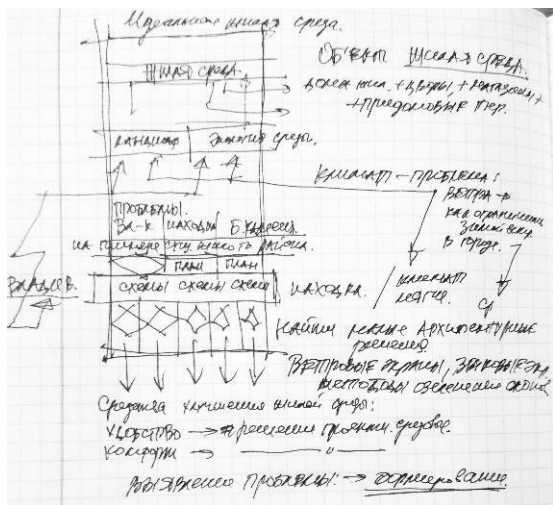 Идеальная жилая среда.
Жилая среда.
Объект жилая среда.
дома жил. + дворы, + магазины +
+ придомовые тер.
ландшафт экология среды.
климат – проблема:
ветра →
как ограничить
зимой
в городе.
Проблемы.
Вл-к Находка Б. Камень
на примере сущ. жилого района.
план план
схемы схемы схемы
Владив.
Находка. / климат
мягче.
ср
Найти малые архитектурные
решения.
Ветровые экраны, звуковые
методы озеленения
Средства улучшения жилой среды:
удобство → решения средовое.
комфорт → —— " ——
Выявление проблемы: → формирование.